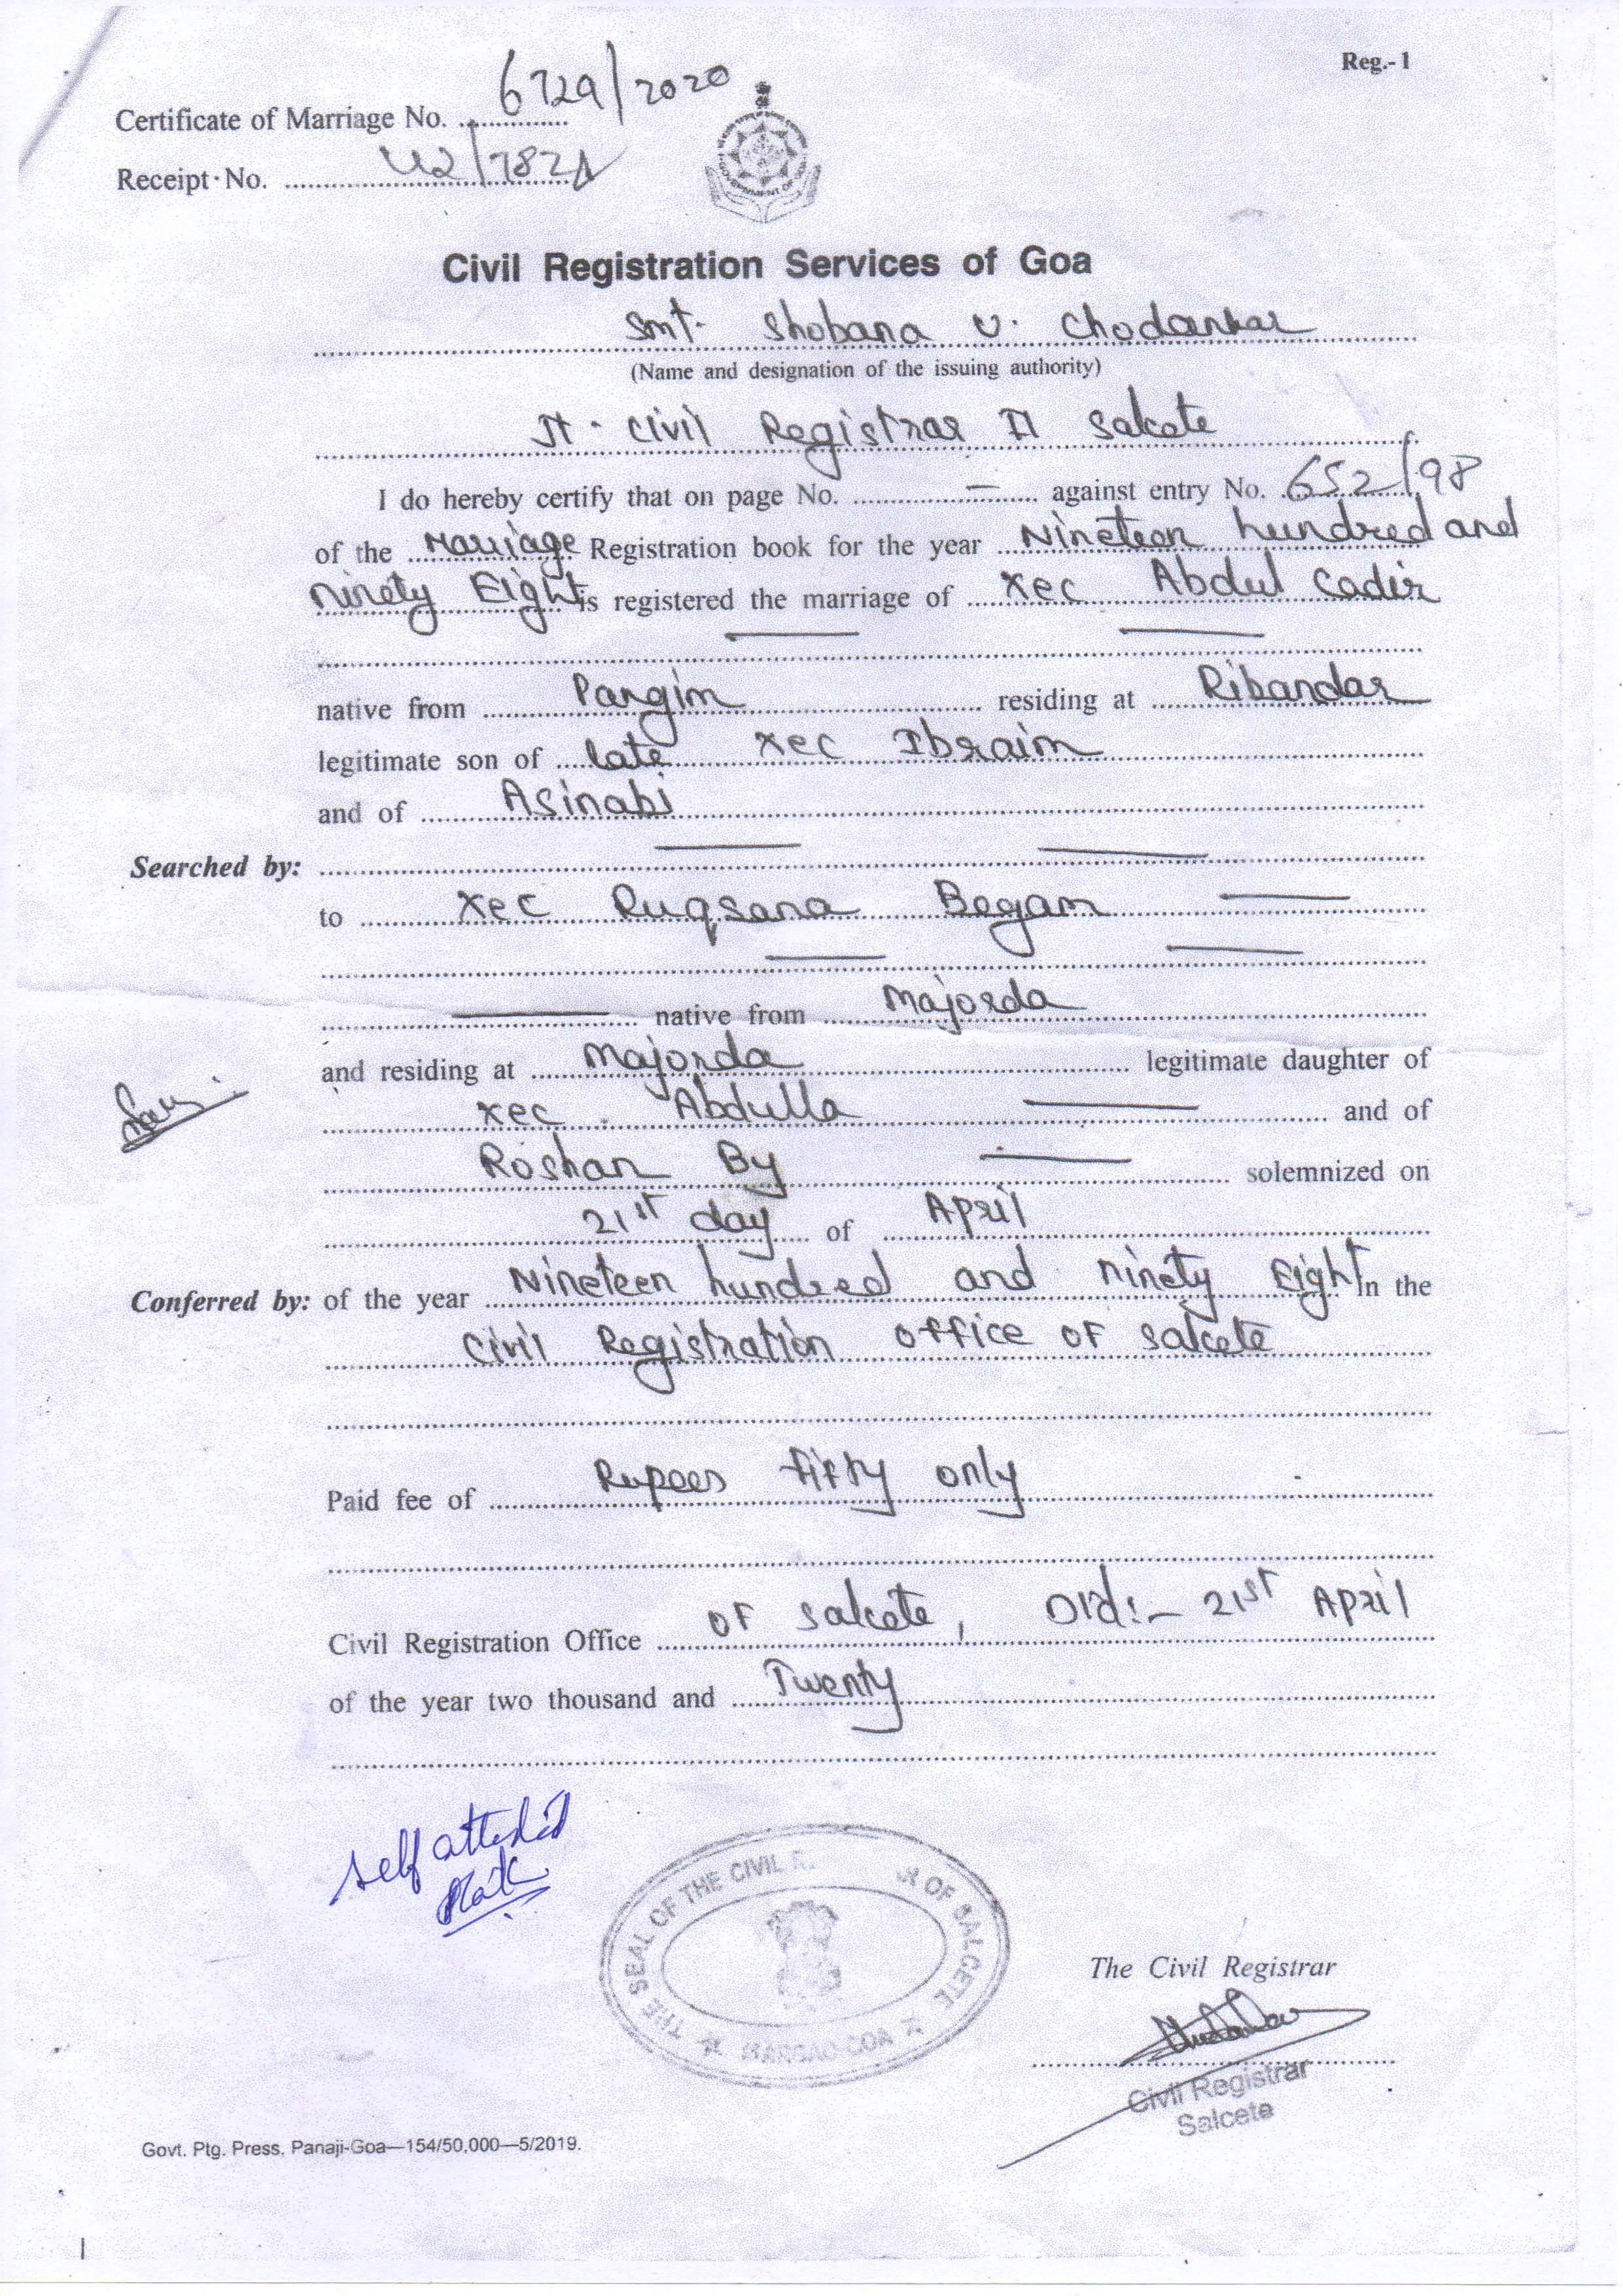 Reg.-1
Certificate of Marriage No. 6729/2020
Receipt No.
GOVERNMENT OF GOA
Civil Registration Services of Goa
Smt. Shobana V. Chodankar
(Name and designation of the issuing authority)
Jt. Civil Registrar II Salcete
I do hereby certify that on page No. — against entry No. 652/98
of the Marriage Registration book for the year Nineteen hundred and
Ninety Eight is registered the marriage of Xec Abdul Cadir
native from Pangim residing at Ribandar
legitimate son of late Xec Ibraim
and of Asinabi
Searched by:
to Xec Ruqsana Begam
native from Majorda
and residing at Majorda legitimate daughter of
Xec Abdulla and of
Roshan By solemnized on
21st day of April
Conferred by: of the year Nineteen hundred and Ninety Eight in the
Civil Registration office of Salcete
Paid fee of Rupees fifty only
Civil Registration Office of Salcete, 21st April
of the year two thousand and Twenty
self attested
THE SEAL OF THE CIVIL R OF SALCETE
MARGAO GOA
The Civil Registrar
Civil Registrar
Salcete
Govt. Ptg. Press, Panaji-Goa—154/50,000—5/2019.